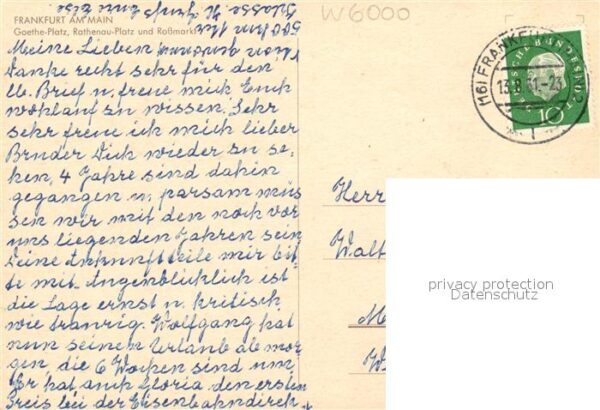 W6000
FRANKFURT AM MAIN
Goethe-Platz, Rathenau-Platz und Roßmarkt
Meine Lieben
danke recht sehr für den
lb. Brief u. freue mich Euch
wohlauf zu wissen, Sehr
sehr freue ich mich lieber
Bruder Dich wieder zu se-
hen, 4 Jahre sind dahin
gegangen u. sparsam müs
sen wir mit den noch vor
uns liegenden Jahren sein
Deine Ankunft teile mir bit-
te mit. Augenblicklich ist
die Lage ernst u. kritisch
wie traurig. Wolfgang hat
nun seinen Urlaub ab mor
gen, die 6 Wochen sind um
Er hat auch Gloria den ersten
Preis bei der Eisenbahndirekt
(16) FRANKFURT
13.8.61.-23
DEUTSCHE BUNDESPOST
10
Herr
Walt
privacy protection
Datenschutz
M
W